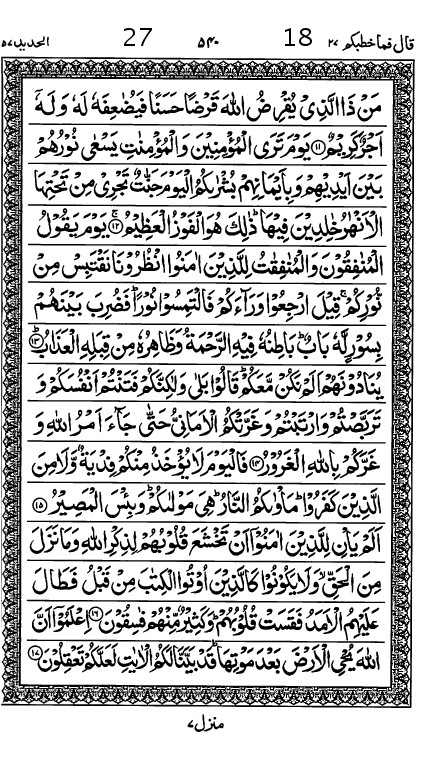 قال فماخطبکم ۲۷ 18 ۵۴۰ 27 الحدید ۵۷
مَنْ ذَا الَّذِیْ یُقْرِضُ اللّٰهَ قَرْضًا حَسَنًا فَیُضٰعِفَهٗ لَهٗ وَ لَهٗۤ
اَجْرٌ كَرِیْمٌ ﴿۱۱﴾ یَوْمَ تَرَی الْمُؤْمِنِیْنَ وَ الْمُؤْمِنٰتِ یَسْعٰی نُوْرُهُمْ
بَیْنَ اَیْدِیْهِمْ وَ بِاَیْمَانِهِمْ بُشْرٰىكُمُ الْیَوْمَ جَنّٰتٌ تَجْرِیْ مِنْ تَحْتِهَا
الْاَنْهٰرُ خٰلِدِیْنَ فِیْهَا ؕ ذٰلِكَ هُوَ الْفَوْزُ الْعَظِیْمُ ﴿۱۲﴾ یَوْمَ یَقُوْلُ
الْمُنٰفِقُوْنَ وَ الْمُنٰفِقٰتُ لِلَّذِیْنَ اٰمَنُوا انْظُرُوْنَا نَقْتَبِسْ مِنْ
نُّوْرِكُمْ ۚ قِیْلَ ارْجِعُوْا وَرَآءَكُمْ فَالْتَمِسُوْا نُوْرًا ؕ فَضُرِبَ بَیْنَهُمْ
بِسُوْرٍ لَّهٗ بَابٌ ؕ بَاطِنُهٗ فِیْهِ الرَّحْمَةُ وَ ظَاهِرُهٗ مِنْ قِبَلِهِ الْعَذَابُ ﴿۱۳﴾
یُنَادُوْنَهُمْ اَلَمْ نَكُنْ مَّعَكُمْ ؕ قَالُوْا بَلٰی وَ لٰكِنَّكُمْ فَتَنْتُمْ اَنْفُسَكُمْ وَ
تَرَبَّصْتُمْ وَ ارْتَبْتُمْ وَ غَرَّتْكُمُ الْاَمَانِیُّ حَتّٰی جَآءَ اَمْرُ اللّٰهِ وَ
غَرَّكُمْ بِاللّٰهِ الْغَرُوْرُ ﴿۱۴﴾ فَالْیَوْمَ لَا یُؤْخَذُ مِنْكُمْ فِدْیَةٌ وَّ لَا مِنَ
الَّذِیْنَ كَفَرُوْا ؕ مَاْوٰىكُمُ النَّارُ ؕ هِیَ مَوْلٰىكُمْ ؕ وَ بِئْسَ الْمَصِیْرُ ﴿۱۵﴾
اَلَمْ یَاْنِ لِلَّذِیْنَ اٰمَنُوْۤا اَنْ تَخْشَعَ قُلُوْبُهُمْ لِذِكْرِ اللّٰهِ وَ مَا نَزَلَ
مِنَ الْحَقِّ ۙ وَ لَا یَكُوْنُوْا كَالَّذِیْنَ اُوْتُوا الْكِتٰبَ مِنْ قَبْلُ فَطَالَ
عَلَیْهِمُ الْاَمَدُ فَقَسَتْ قُلُوْبُهُمْ ؕ وَ كَثِیْرٌ مِّنْهُمْ فٰسِقُوْنَ ﴿۱۶﴾ اِعْلَمُوْۤا اَنَّ
اللّٰهَ یُحْیِ الْاَرْضَ بَعْدَ مَوْتِهَا ؕ قَدْ بَیَّنَّا لَكُمُ الْاٰیٰتِ لَعَلَّكُمْ تَعْقِلُوْنَ ﴿۱۷﴾
منزل ۷